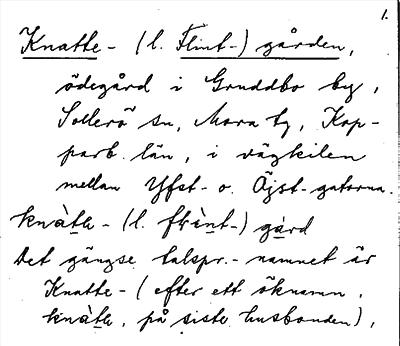 1.
Knatte- (l. Flint-) gården,
ödegård i Gruddbo by,
Sollerö sn, Mora tg, Kop-
parb. län, i vägkilen
mellan Yfst- o. Öjst-gatorna.
knàtḥ- (l. flìnt-) gård
Det gängse talspr.-namnet är
Knatte- (efter ett öknamn,
på siste husbonden),